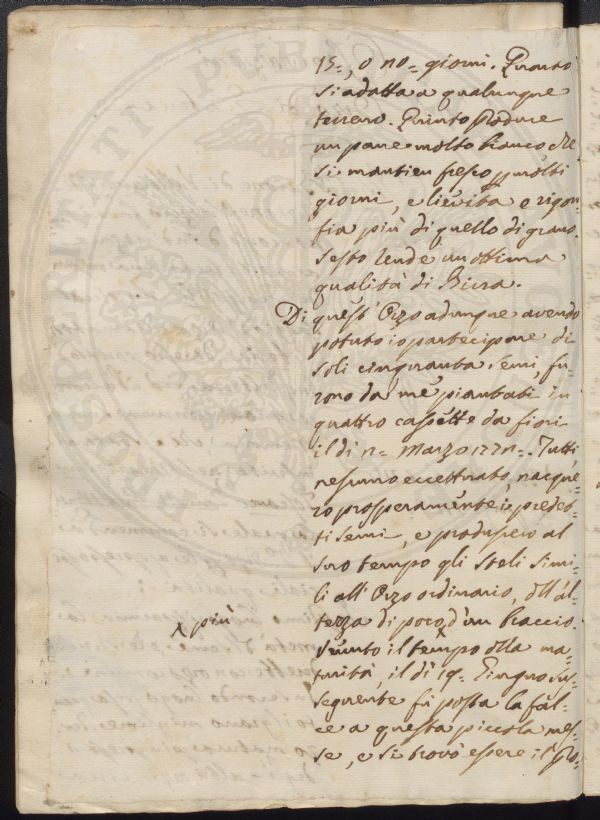 15=, o 20= giorni. Quarto
si adatta a qualunque
terreno. Quinto produce
un pane molto bianco che
si mantien fresco p molti
giorni, e lievita e rigon=
fia più di quello di grano.
Sesto rende un ottima
qualità di Birra.
Di quest'Orzo adunque avendo
potuto io partecipare di
soli cinquanta semi, fu=
rono da me piantati in
quattro cassette da fiori
il dì 2= Marzo 1772=. Tutti,
nessuno eccettuato, nacque=
ro prosperamente i predet=
ti semi, e produssero al
loro tempo gli steli simi=
li all'Orzo ordinario, dll'al=
tezza di poco × d'un braccio.
× più
Giunto il tempo dlla ma=
turità, il dì 19= Giugno sus=
seguente fù posta la fal=
ce a questa piccola mes=
se, e si trovò essere il pro=